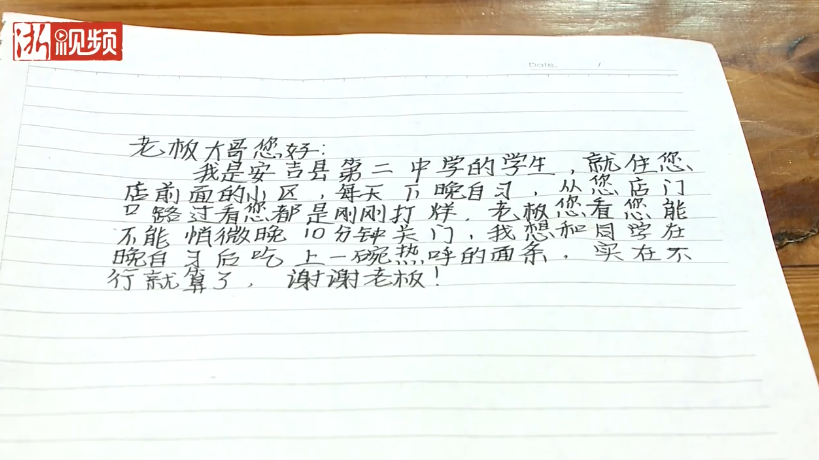 浙视频
Date. /
老板大哥您好:
我是安吉县第二中学的学生,就住您
店前面的小区,每天下晚自习,从您店门
口路过看您都是刚刚打烊.老板您看您能
不能悄微晚10分钟关门,我想和同学在
晚自习后吃上一碗热呼的面条,实在不
行就算了,谢谢老板!